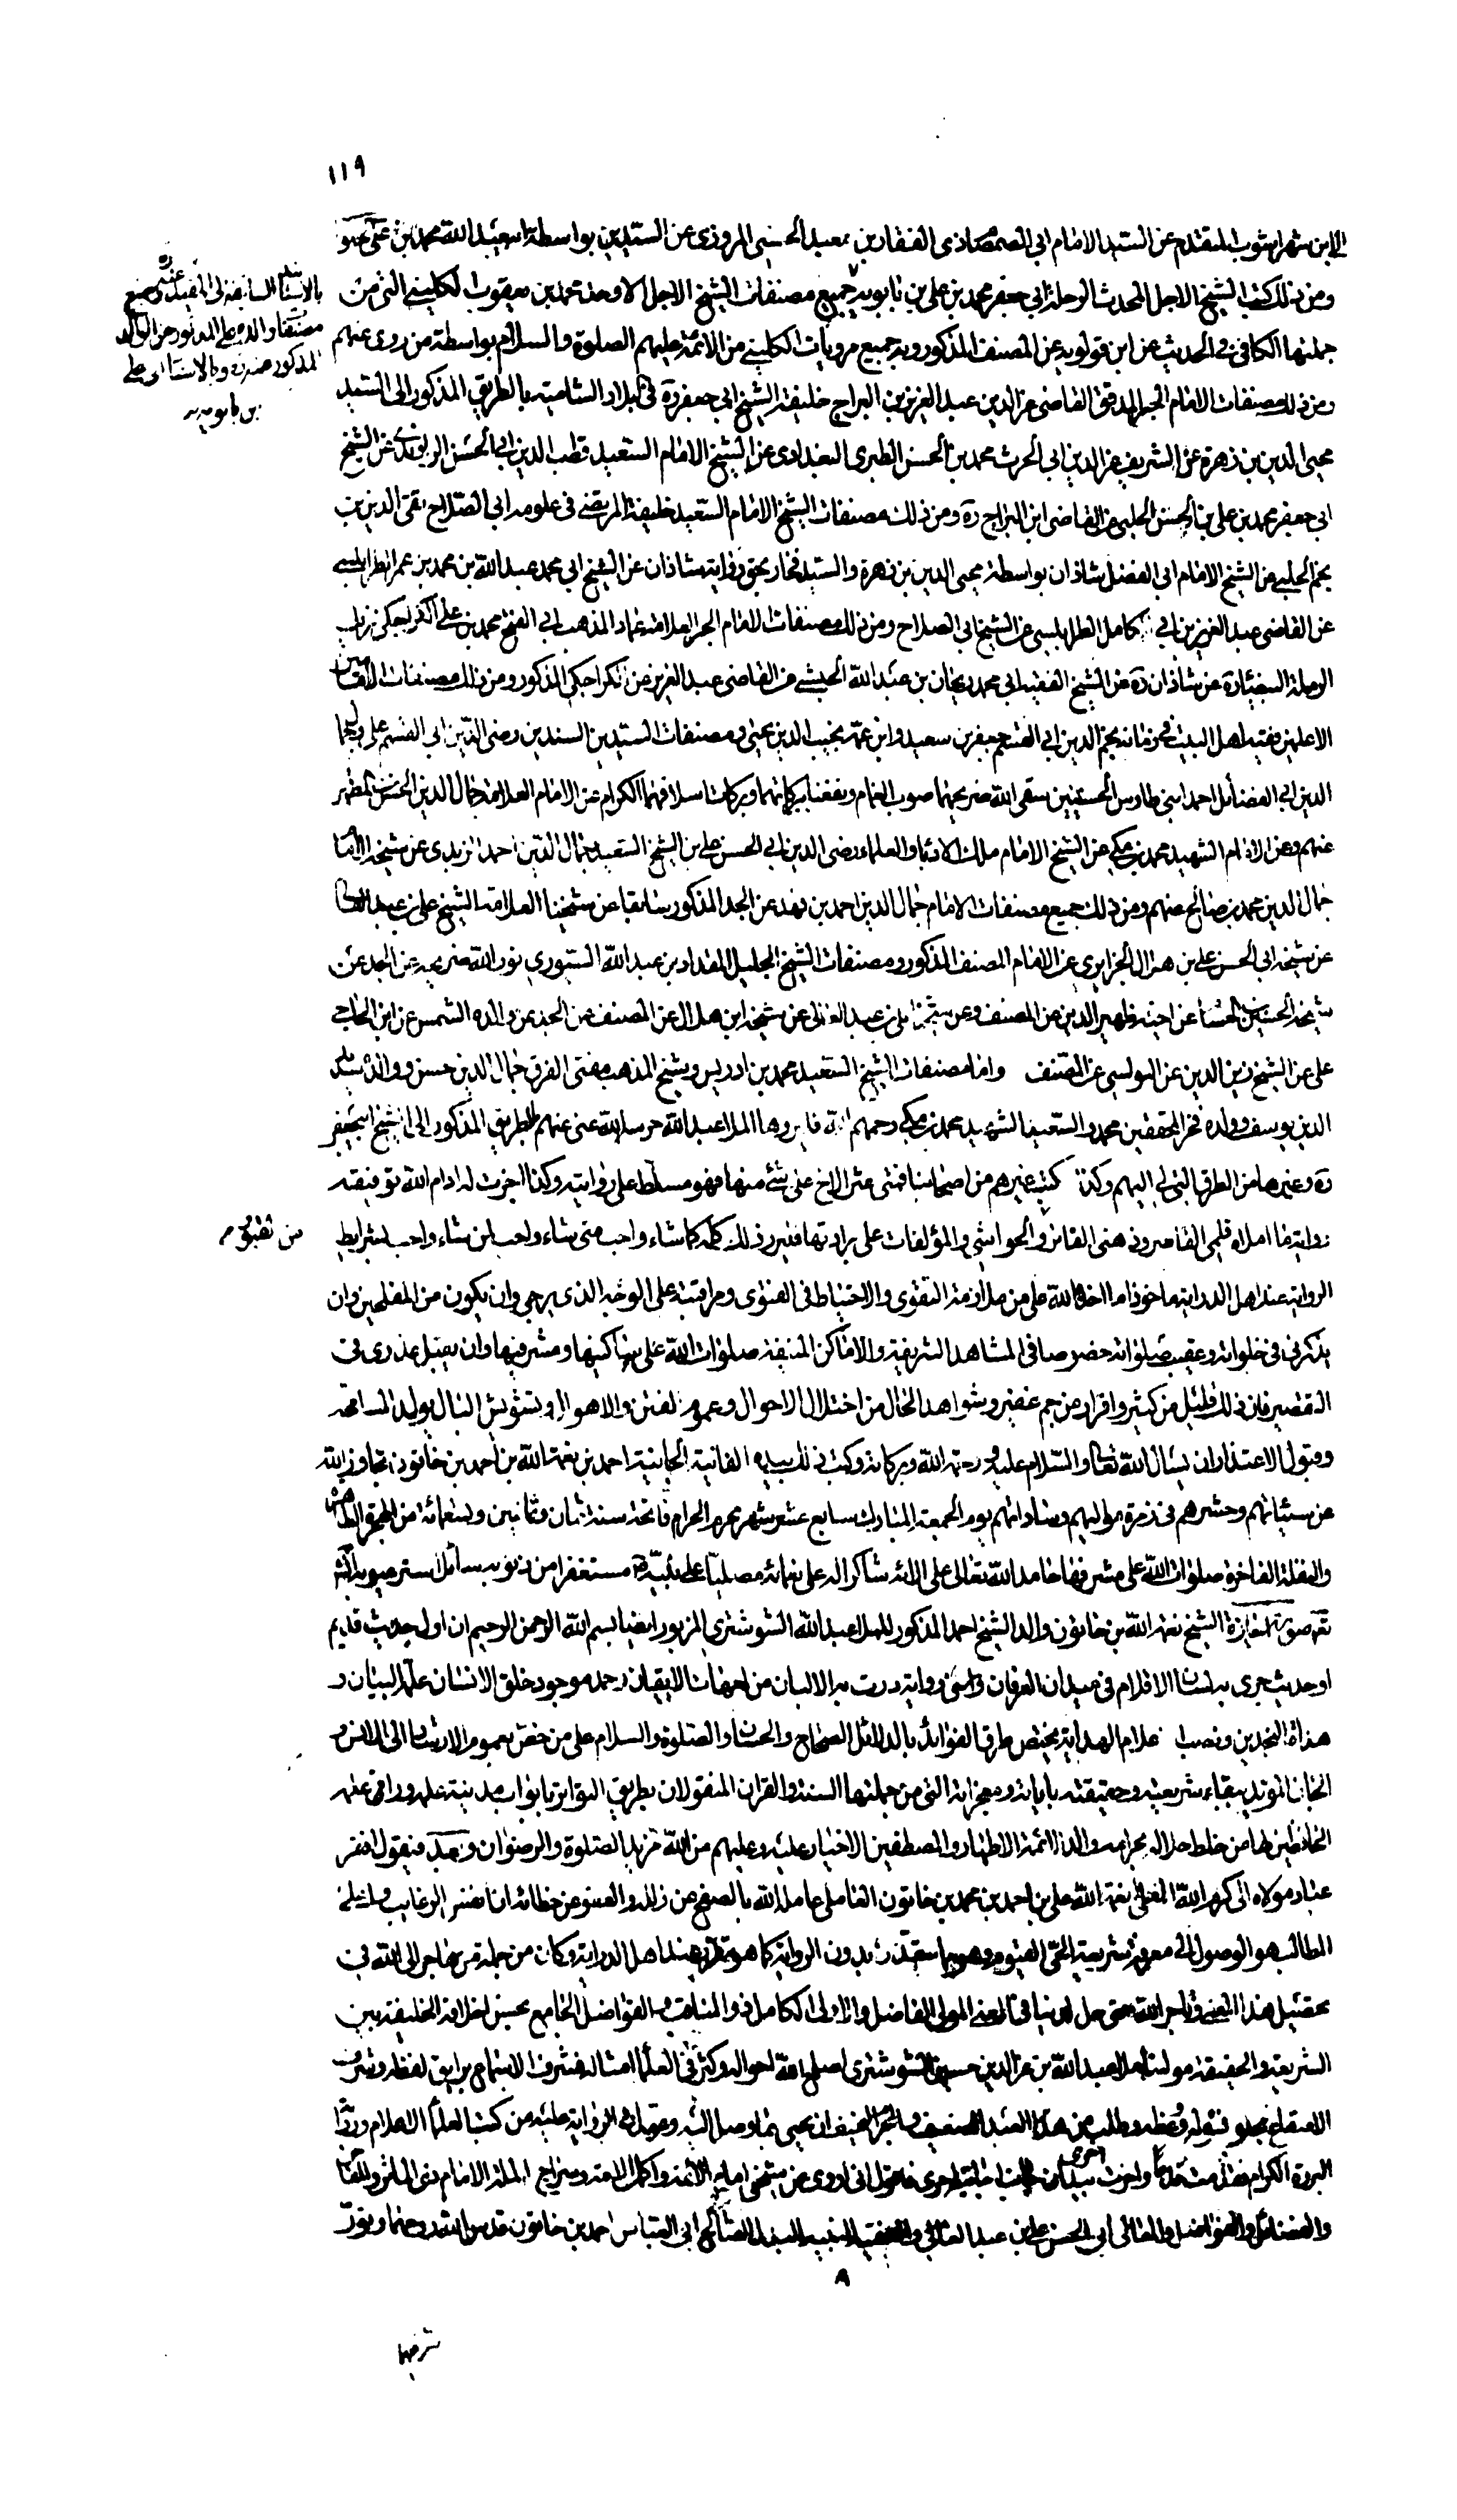 ١١٩
الى ابن شهرآشوب المتقدم عن السيد الامام ابي الصمصام ذي الفقار بن معبد الحسني المروزي عن السيدين بواسطة ابي عبد الله محمد بن علي
ومن ذلك كتب الشيخ الاجل المحدث الرحلة ابي جعفر محمد بن علي بن بابويه جميع مصنفات الشيخ الاجل الاوحد محمد بن يعقوب الكليني التي من
جملتها الكافي في الحديث عن ابن قولويه عن المصنف المذكور وبه جميع مرويات الكليني من الائمة عليهم الصلوة والسلام بواسطة من روى عنهم
ومن ذلك مصنفات الامام الحبر المدقق القاضي عز الدين عبد العزيز بن البراج خليفة الشيخ ابي جعفر ره في البلاد الشامية بالطريق المذكور الى السيد
محيي الدين بن زهرة عن الشريف عز الدين ابي الحرث محمد بن الحسن الطبري البغدادي عن الشيخ الامام السعيد قطب الدين ابي الحسن الراوندي عن الشيخ
ابي جعفر محمد بن علي بن الحسن الحلبي عن القاضي ابن البراج ره ومن ذلك مصنفات الشيخ الامام السعيد خليفة المرتضى في علومه ابي الصلاح تقي الدين بن
نجم الحلبي عن الشيخ الامام ابي الفضل شاذان بواسطة محيي الدين بن زهرة والسيد فخار بحق رواية شاذان عن الشيخ ابي محمد عبد الله بن محمد بن عمر الطرابلسي
عن القاضي عبد العزيز بن ابي كامل الطرابلسي عن الشيخ ابي الصلاح ومن ذلك مصنفات الامام الحبر العلامة عماد المذهب ابي الفتح محمد بن علي الكراجكي نزيل
الرملة البيضاء ره عن شاذان ره عن الشيخ الفقيه ابي محمد ريحان بن عبد الله الحبشي عن القاضي عبد العزيز عن الكراجكي المذكور ومن ذلك مصنفات الامامين
الاعلمين فقيه اهل البيت في زمانه نجم الدين ابي القسم جعفر بن سعيد وابن عمه نجيب الدين يحيى ومصنفات السيدين السندين رضي الدين ابي القسم علي وجمال
الدين ابي الفضائل احمد ابني طاوس الحسنيين سقى الله ضريحهما صوب الغمام ونفعنا ببركاتهما وبركات اسلافهما الكرام عن الامام العلامة جمال الدين الحسن بن المطهر
عنهم وعن الامام الشهيد محمد بن مكي عن الشيخ الامام ملك الادباء والعلماء رضي الدين ابي الحسن علي بن الشيخ السعيد جمال الدين احمد المزيدي عن شيخه الامام
جمال الدين محمد بن صالح عنهم ومن ذلك جميع مصنفات الامام جمال الدين احمد بن فهد عن الجد المذكور سابقا عن شيخنا العلامة الشيخ علي بن عبد العالي
عن شيخه ابي الحسن علي بن هلال الجزايري عن الامام المصنف المذكور ومصنفات الشيخ الجليل المقداد بن عبد الله السيوري نور الله ضريحه عن الجد عن
شيخه الحسين بن الحسام عن اخيه ظهير الدين عن المصنف وعن شيخه علي بن عبد العالي عن شيخه ابن هلال عن المصنف عن الجد عن والده الشمس عن ابن الحاج
علي عن الشيخ زين الدين عن التوليني عن المصنف واما مصنفات الشيخ السعيد محمد بن ادريس وشيخ المذهب مفتي الفرق جمال الدين حسن ووالده سديد
الدين يوسف وولده فخر المحققين محمد والسعيد الشهيد محمد بن مكي رحمهم الله فليروها الملا عبد الله حرسه الله عني عنهم بالطريق المذكور الى الشيخ ابي جعفر
ره وغيرها من الطرق التي لي اليهم وكذا كتب غيرهم من اصحابنا فمتى عثر الاخ على شئ منها فهو مسلط على روايته وكذا اجزت له ادام الله توفيقه
رواية ما املاه قلمي القاصر وذهني الفاتر والحواشي والمؤلفات على برادتها فليرو ذلك كله كما شاء واحب متى شاء واحب لمن شاء واحب بشرايط
الرواية عند اهل الدراية ماخوذا ما اخذ الله علي من ملازمة التقوى والاحتياط في الفتوى ومراقبته على الوجه الذي يرجى وان يكون من المفلحين وان
يذكرني في خلواته وعقيب صلواته خصوصا في المشاهد الشريفة والاماكن المنيفة صلوات الله على ساكنيها ومشرفيها وان يقبل عذري في
التقصير فان ذلك قليل من كثير وافراد من جم غفير وشواهد الحال من اختلال الاحوال وعموم الفتن والاهوال وتشويش البال يوليد المسامحة
وقبول الاعتذار ان يسأل الله تعالى والسلام عليه ورحمة الله وبركاته وكتب ذلك بيده الفانية الجانية احمد بن نعمة الله بن احمد بن خاتون تجاوز الله
عن سيئاتهم وحشرهم في زمرة مواليهم وساداتهم يوم الجمعة المبارك سابع عشر شهر محرم الحرام فاتحة سنة ثمان وثمانين وتسعمائة من الهجرة الطاهرة
والنقلة الفاخرة صلوات الله على مشرفها حامدا لله تعالى على الائه شاكرا له على نعمائه مصليا على نبيه وآله مستغفرا من ذنوبه سائلا ستر عيوبه
صورة اجازة الشيخ نعمة الله بن خاتون والد الشيخ احمد المذكور للملا عبد الله الشوشتري المزبور ايضا بسم الله الرحمن الرحيم ان اول حديث قديم
او حديث جرى به لسان الاقلام في ميدان العرفان واسنى رواية درت به الالبان من امهات الايقان حمد موجود خلق الانسان علمه البيان و
هداه النجدين ونصب اعلام الهداية بخصص طرق الفوائد بالدلائل الصحاح والحسان والصلوة والسلام على من خص بعموم الارسال الى الانس و
الجان المؤيد ببقاء شريعته وحقيقته باياته ومعجزاته التي من جملتها السنة والقران المنقولان بطريق التواتر بابواب مدينة علمه ورافعي علمه
الحافظين لها من خلط حلاله بحرامه والدنا ائمة الاطهار والمصطفين الاخيار عليه وعليهم من الله مزيد الصلوة والرضوان وبعد فيقول افقر
عباد مولاه الى كرم الله العلي نعمة الله علي بن احمد بن محمد بن خاتون العاملي عامله الله بالصفح عن زلله والعفو عن خطائه ان انفس الرغايب واعلى
المطالب هو الوصول الى معرفة شريعة الحي القيوم وهو مما يتعذر بدون الرواية كما هو مقرر عند اهل الدراية وكان من جملة من هاجر الى الله في
تحصيل هذا المعنى حتى حل بفنائنا المولى الفاضل والاولى الكامل ذو المناقب والفواضل الجامع بحسن اخلاقه الخليقة بين
الشريعة والحقيقة مولنا ملا عبد الله بن عز الدين حسين الشوشتري اصلح الله احواله وكثر في العلماء امثاله فشرف الاسماع برايق لفظه وشرف
الاصقاع بعلو وعظه وطلب من هذا العبد الضعيف والجرم النحيف ان يجيز له ما وصل اليه وعول في الرواية عليه من كتب العلماء الاعلام ورواة
البررة الكرام فاجزت فاقول اني اروي عن شيخي امام الائمة واكمل الامة وسراج الملة الامام ذي المآثر والمفاخر
والفضائل والفواضل والمعالي ابي الحسن علي بن عبد العالي والفقيه النبيه البدل الصالح ابي العباس احمد بن خاتون قدس الله روحهما ونور
٨
ضريحهما